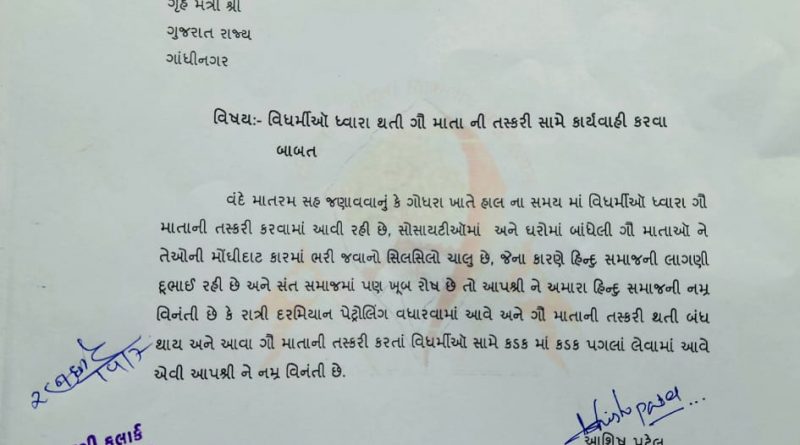 ગૃહ મંત્રી શ્રી
ગુજરાત રાજ્ય
ગાંધીનગર
વિષય:- વિધર્મીઓ ધ્વારા થતી ગૌ માતા ની તસ્કરી સામે કાર્યવાહી કરવા
બાબત
વંદે માતરમ સહ જણાવવાનું કે ગોધરા ખાતે હાલ ના સમય માં વિધર્મીઓ ધ્વારા ગૌ
માતાની તસ્કરી કરવામાં આવી રહી છે, સોસાયટીઓમાં અને ઘરોમાં બાંધેલી ગૌ માતાઓ ને
તેઓની મોંઘીદાટ કારમાં ભરી જવાનો સિલસિલો ચાલુ છે, જેના કારણે હિન્દુ સમાજની લાગણી
દૂભાઈ રહી છે અને સંત સમાજમાં પણ ખૂબ રોષ છે તો આપશ્રી ને અમારા હિન્દુ સમાજની નમ્ર
વિનંતી છે કે રાત્રી દરમિયાન પેટ્રોલિંગ વધારવામાં આવે અને ગૌ માતાની તસ્કરી થતી બંધ
થાય અને આવા ગૌ માતાની તસ્કરી કરતાં વિધર્મીઓ સામે કડક માં કડક પગલાં લેવામાં આવે
એવી આપશ્રી ને નમ્ર વિનંતી છે.
કલાર્ક
આશિષ પટેલ